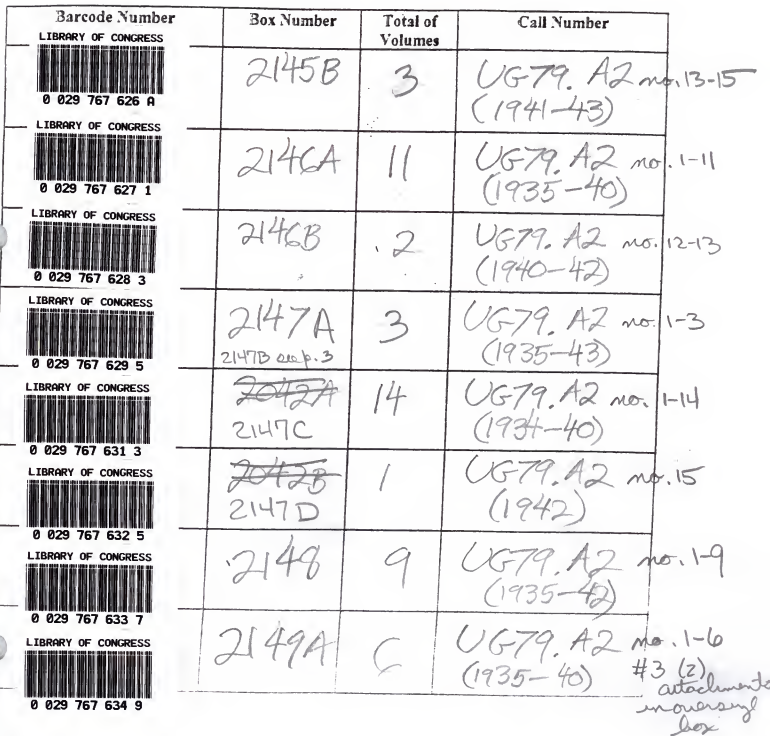 Barcode Number Box Number Total of Volumes Call Number
LIBRARY OF CONGRESS
0 029 767 626 A
2145B 3 UG79. A2 no. 13-15
(1941-43)
LIBRARY OF CONGRESS
0 029 767 627 1
2146A 11 UG79. A2 no. 1-11
(1935-40)
LIBRARY OF CONGRESS
0 029 767 628 3
2146B 2 UG79. A2 no. 12-13
(1940-42)
LIBRARY OF CONGRESS
0 029 767 629 5
2147A 3 UG79. A2 no. 1-3
2147B p. 3 (1935-43)
LIBRARY OF CONGRESS
0 029 767 631 3
2042A 14 UG79. A2 no. 1-14
2147C (1934-40)
LIBRARY OF CONGRESS
0 029 767 632 5
2042B 1 UG79. A2 no. 15
2147D (1942)
LIBRARY OF CONGRESS
0 029 767 633 7
2148 9 UG79. A2 no. 1-9
(1935-42)
LIBRARY OF CONGRESS
0 029 767 634 9
2149A 6 UG79. A2 no. 1-6
(1935-40) #3 (2)
attachments
in oversized
box